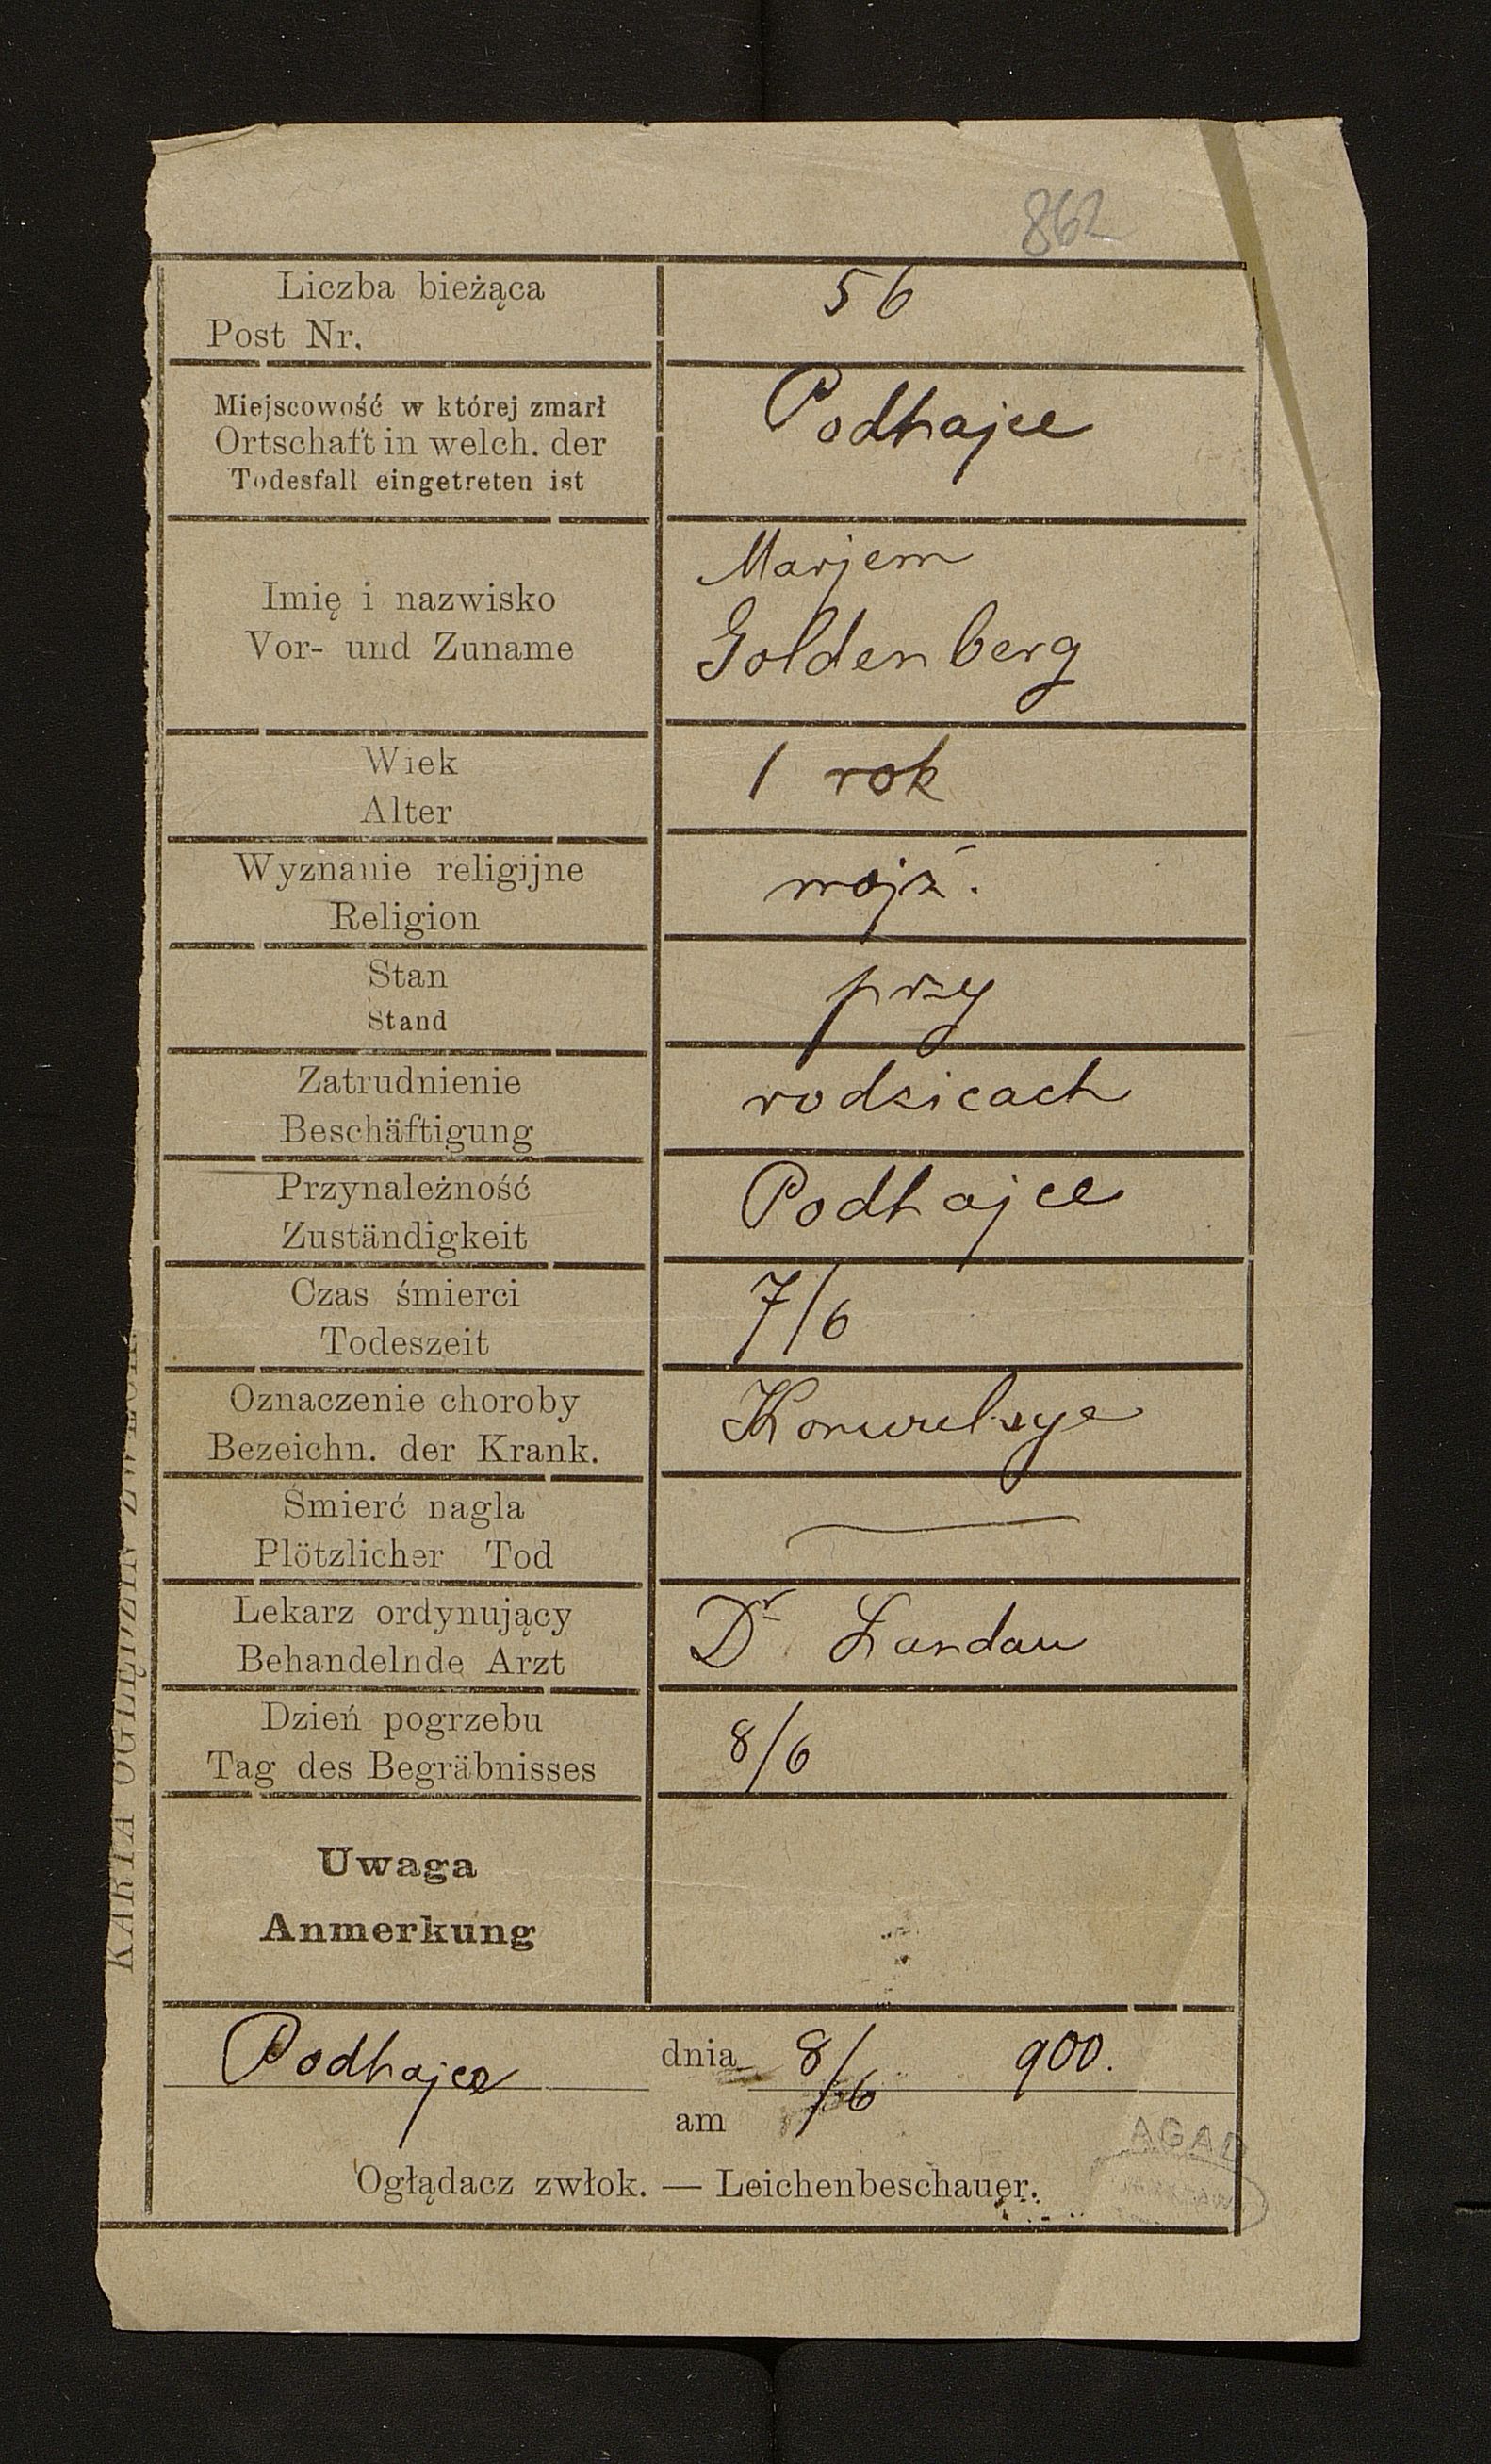 862
Liczba bieżąca
Post Nr.
56
Miejscowość w której zmarł
Ortschaft in welch. der
Todesfall eingetreten ist
Podhajce
Imię i nazwisko
Vor- und Zuname
Marjem
Goldenberg
Wiek
Alter
1 rok
Wyznanie religijne
Religion
mojż.
Stan
Stand
przy
Zatrudnienie
Beschäftigung
rodzicach
Przynależność
Zuständigkeit
Podhajce
Czas śmierci
Todeszeit
7/6
Oznaczenie choroby
Bezeichn. der Krank.
Konwulsye
Śmierć nagla
Plötzlicher Tod
Lekarz ordynujący
Behandelnde Arzt
Dr Landau
Dzień pogrzebu
Tag des Begräbnisses
8/6
Uwaga
Anmerkung
Podhajce dnia 8/6 900.
am
Oglądacz zwłok. — Leichenbeschauer.
KARTA OGLĘDZIN ZWŁOK
AGAD
WARSZAWA